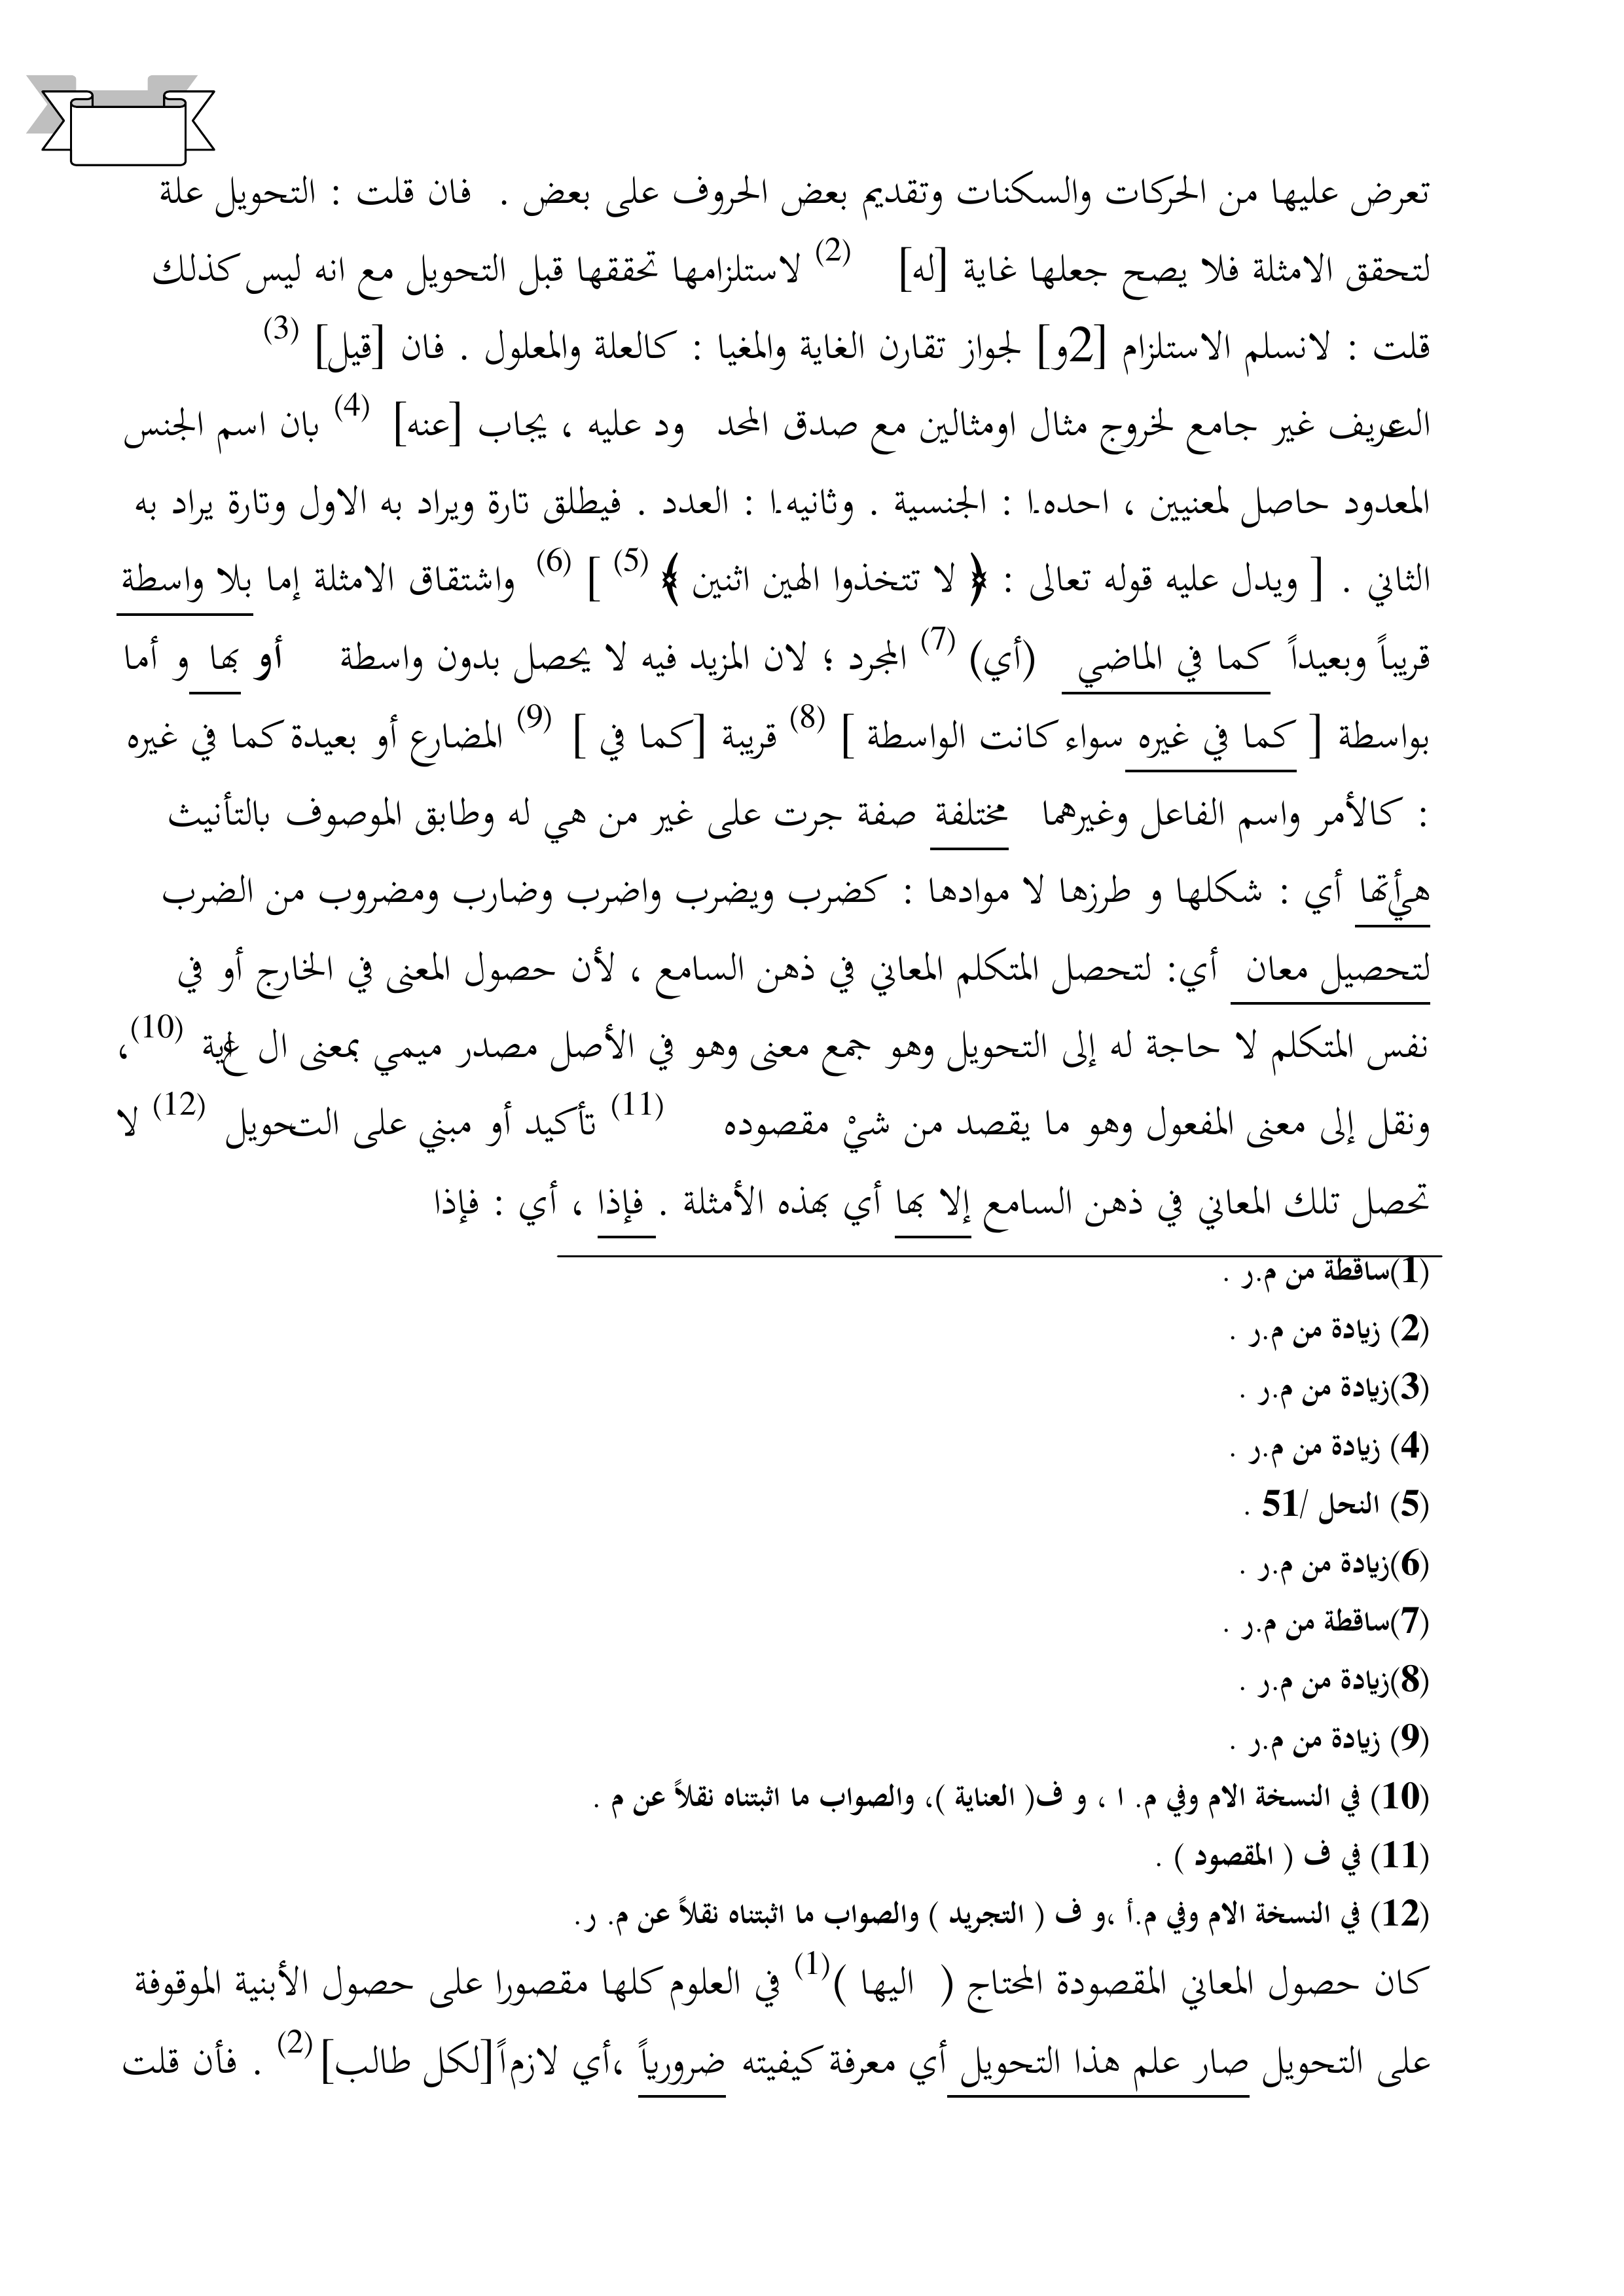 تعرض عليها من الحركات والسكنات وتقديم بعض الحروف على بعض . فان قلت : التحويل علة
لتحقق الامثلة فلا يصح جعلها غاية [له] (2) لاستلزامها تحققها قبل التحويل مع انه ليس كذلك
قلت : لانسلم الاستلزام [2و] لجواز تقارن الغاية والمغيا : كالعلة والمعلول . فان [قيل] (3)
التعريف غير جامع لخروج مثال اومثالين مع صدق المحد ود عليه ، يجاب [عنه] (4) بان اسم الجنس
المعدود حاصل لمعنيين ، احدهما : الجنسية . وثانيهما : العدد . فيطلق تارة ويراد به الاول وتارة يراد به
الثاني . [ ويدل عليه قوله تعالى : ﴿ لا تتخذوا الهين اثنين ﴾ (5) ] (6) واشتقاق الامثلة إما بلا واسطة
قريباً وبعيداً كما في الماضي (أي) (7) المجرد ؛ لان المزيد فيه لا يحصل بدون واسطة أو بها و أما
بواسطة [ كما في غيره سواء كانت الواسطة ] (8) قريبة [كما في ] (9) المضارع أو بعيدة كما في غيره
: كالأمر واسم الفاعل وغيرهما مختلفة صفة جرت على غير من هي له وطابق الموصوف بالتأنيث
هيأتها أي : شكلها و طرزها لا موادها : كضرب ويضرب واضرب وضارب ومضروب من الضرب
لتحصيل معان أي: لتحصل المتكلم المعاني في ذهن السامع ، لأن حصول المعنى في الخارج أو في
نفس المتكلم لا حاجة له إلى التحويل وهو جمع معنى وهو في الأصل مصدر ميمي بمعنى ال غاية (10)،
ونقل إلى معنى المفعول وهو ما يقصد من شيْ مقصوده (11) تأكيد أو مبني على التحويل (12) لا
تحصل تلك المعاني في ذهن السامع إلا بها أي بهذه الأمثلة . فإذا ، أي : فإذا
(1)ساقطة من م.ر .
(2) زيادة من م.ر .
(3)زيادة من م.ر .
(4) زيادة من م.ر .
(5) النحل /51 .
(6)زيادة من م.ر .
(7)ساقطة من م.ر .
(8)زيادة من م.ر .
(9) زيادة من م.ر .
(10) في النسخة الام وفي م. ا ، و ف( العناية )، والصواب ما اثبتناه نقلاً عن م .
(11) في ف ( المقصود ) .
(12) في النسخة الام وفي م.أ ،و ف ( التجريد ) والصواب ما اثبتناه نقلاً عن م. ر.
كان حصول المعاني المقصودة المحتاج ( اليها )(1) في العلوم كلها مقصورا على حصول الأبنية الموقوفة
على التحويل صار علم هذا التحويل أي معرفة كيفيته ضرورياً ،أي لازماً[لكل طالب](2) . فأن قلت